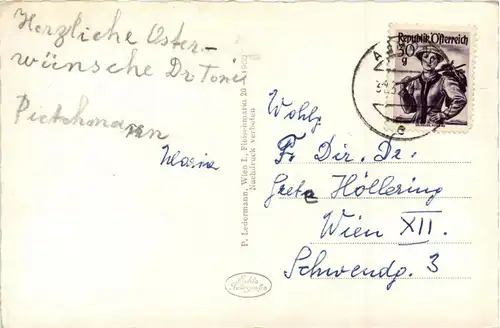 Herzliche Oster-
wünsche Dr Toni
Pietschmann
Maria
P. Ledermann, Wien I., Fleischmarkt 20
Nachdruck verboten
Republik Österreich
30
g
Wohlg.
Fr. Dir. Dr.
Grete Höllering
Wien XII.
Schwendg. 3